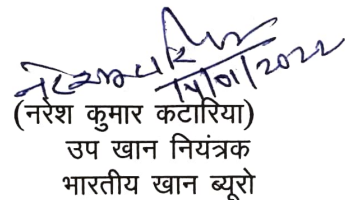 14/01/2022
(नरेश कुमार कटारिया)
उप खान नियंत्रक
भारतीय खान ब्यूरो